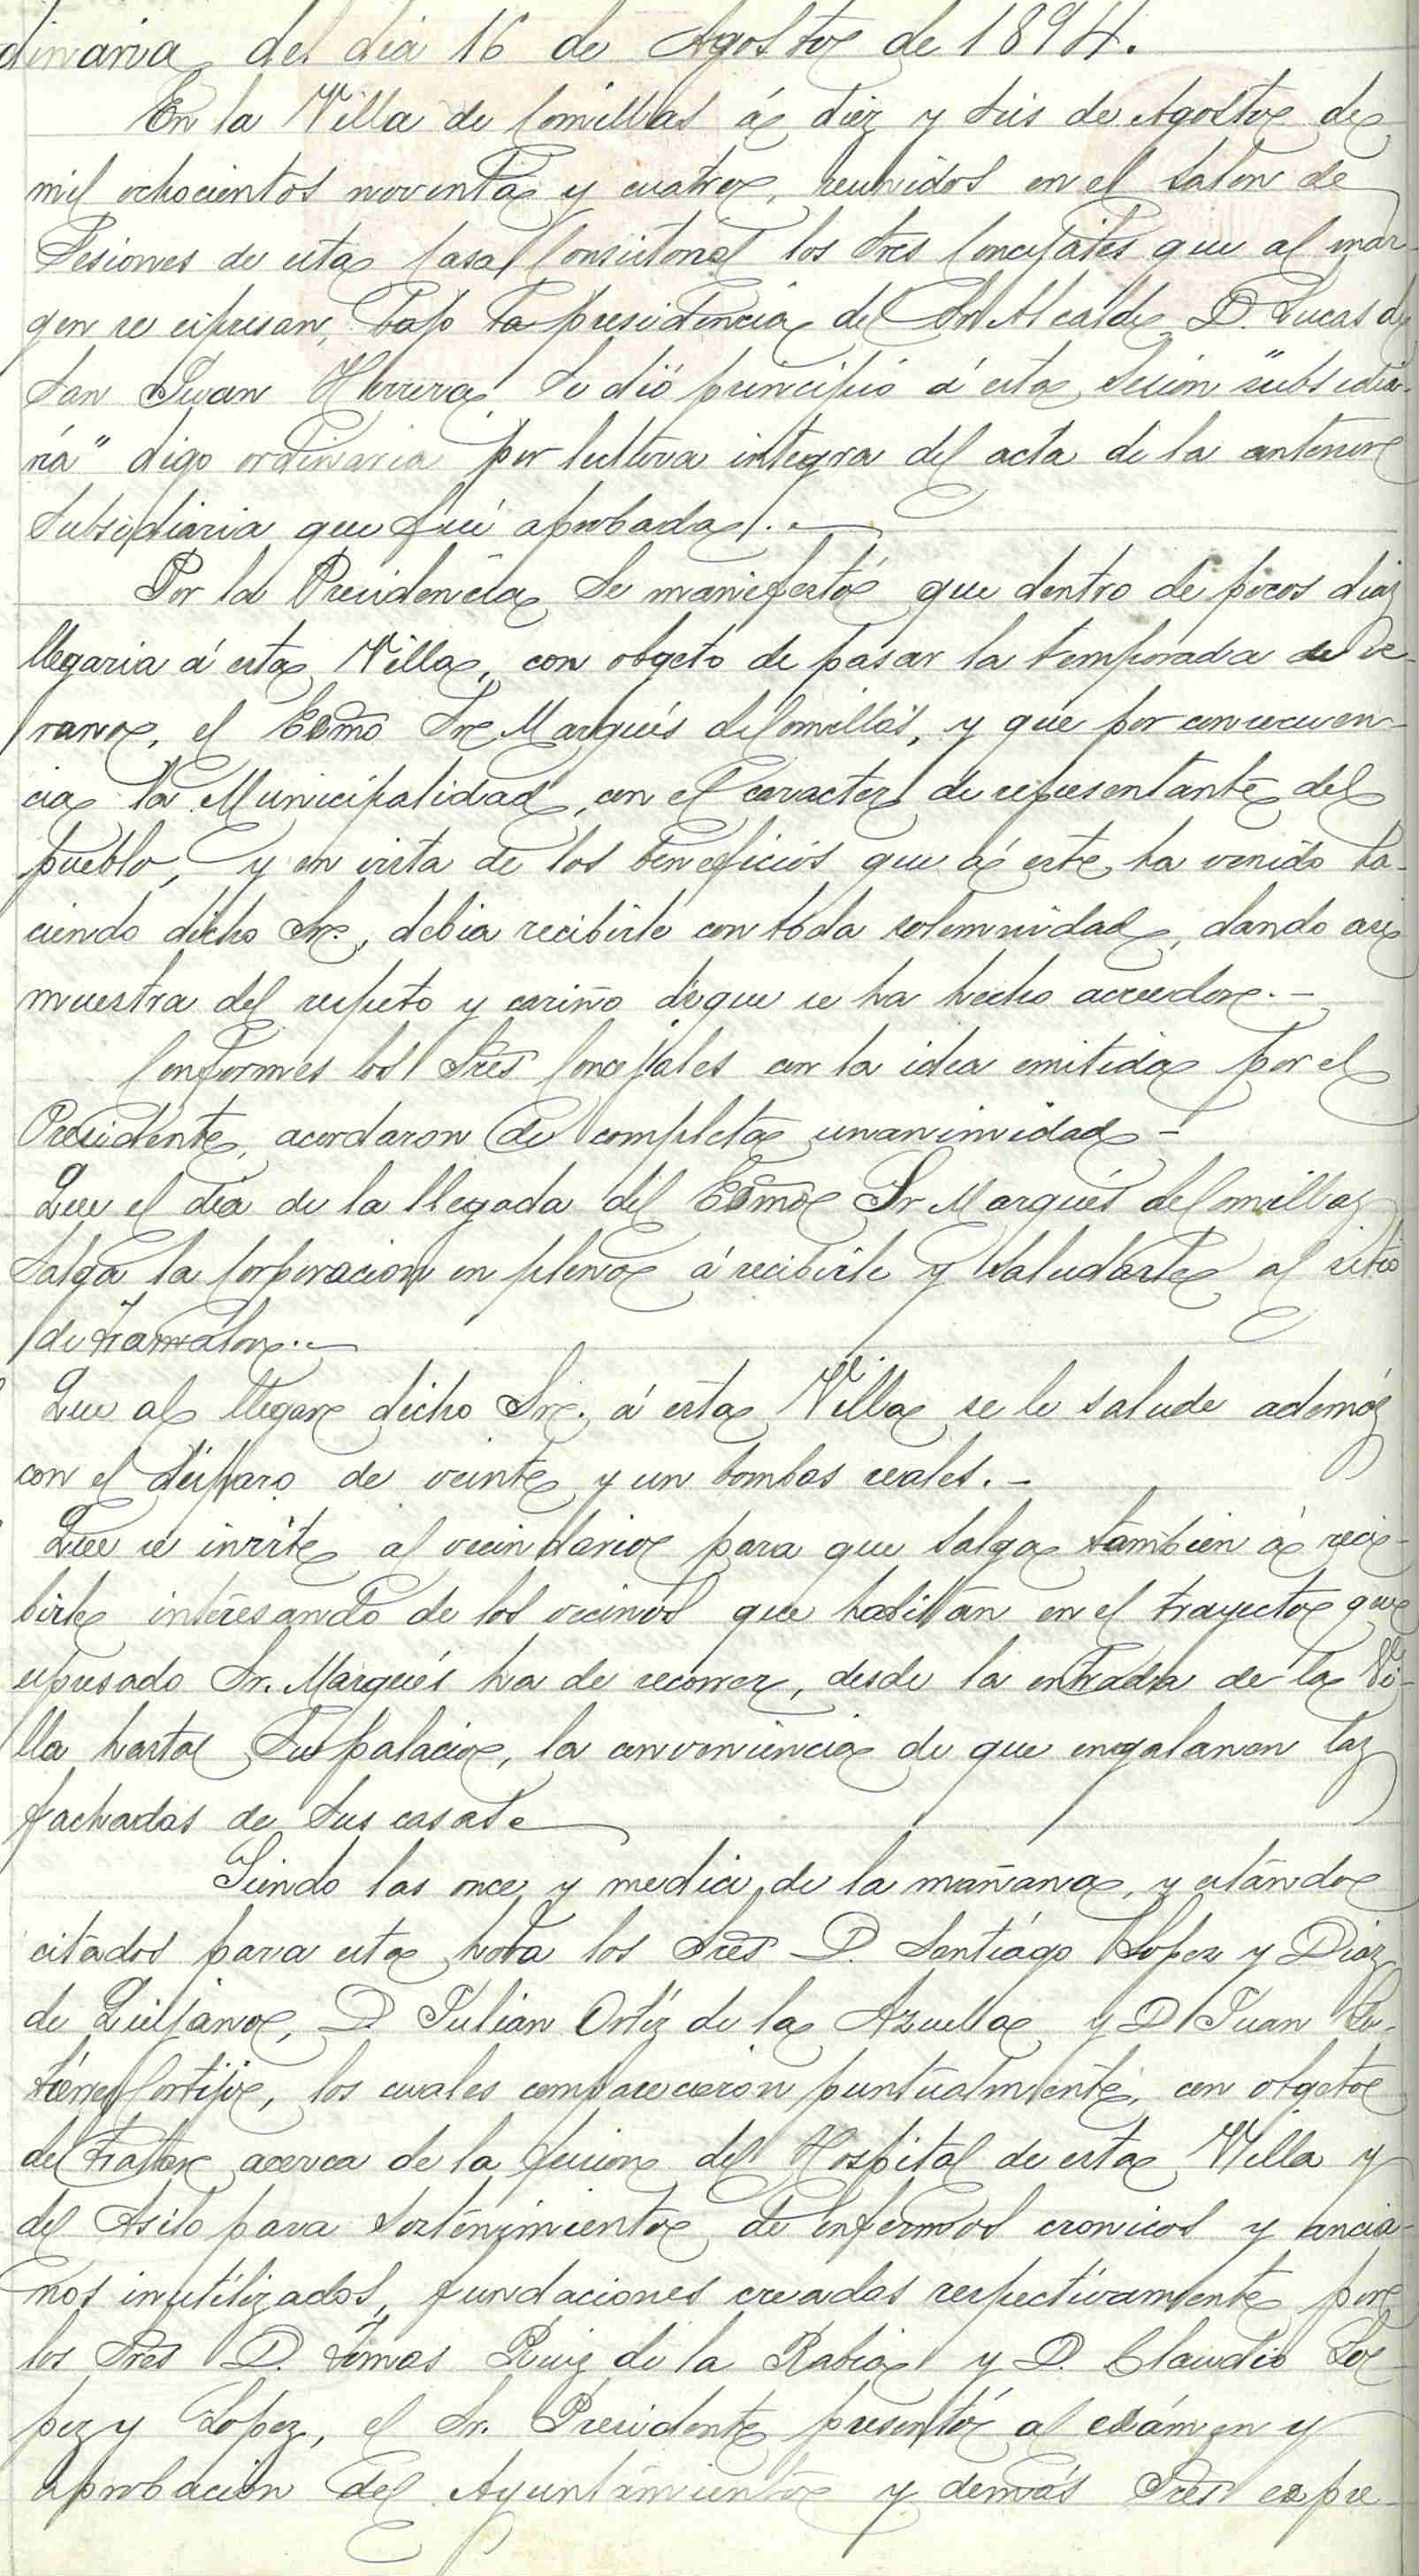 dinaria del dia 16 de Agosto de 1894.
En la Villa de Comillas á diez y seis de Agosto de
mil ochocientos noventa y cuatro, reunidos en el salon de
Sesiones de esta Casa Consistorial los Sres Concejales que al mar-
gen se espresan, bajo la presidencia del Sr Alcalde D. Lucas de
San Juan Herrera se dió principio á esta sesion "subsidia-
ria" digo ordinaria por lectura integra del acta de la anterior
subsidiaria que fué aprobada.
Por la Presidencia se manifestó que dentro de pocos dias
llegaria á esta Villa, con obgeto de pasar la temporada de ve-
rano, el Excmo Sr Marqués de Comillas, y que por consecuen-
cia la Municipalidad, con el caracter de representante del
pueblo, y en vista de los beneficios que á este ha venido ha-
ciendo dicho Sr., debia recibirle con toda solemnidad, dando asi
muestra del respeto y cariño de que se ha hecho acreedor.-
Conformes los Sres Concejales con la idea emitida por el
Presidente, acordaron de completa unanimidad-
Que el dia de la llegada del Excmo Sr Marqués de Comillas
salga la Corporacion en pleno á recibirle y saludarle al sitio
de
Que al llegar dicho Sr. á esta Villa se le salude además
con el disparo de veinte y un bombas reales.-
Que se invite al vecindario para que salga tambien á reci-
birle interesando de los vecinos que habitan en el trayecto que
espresado Sr. Marqués ha de recorrer, desde la entrada de la Vi-
lla hasta su palacio, la conveniencia de que engalanen las
fachadas de sus casas.
Siendo las once y media de la mañana, y estando
citados para esta hora los Sres D. Santiágo Lopez y Diaz
de Quijano, D Julian Ortíz de la Azuela y D Juan Gu-
tierrez Cortijo, los cuales comparecieron puntualmente, con obgeto
de tratar acerca de la fusion del Hospital de esta Villa y
del Asilo para sostenimiento de enfermos cronicos y ancia-
nos inutilizados, fundaciones creadas respectivamente por
los Sres D. Tomas Ruiz de la Rabia y D. Claudio Lo-
pez y Lopez, el Sr. Presidente presentó al exámen y
aprobacion del Ayuntamiento y demás Sres expre-